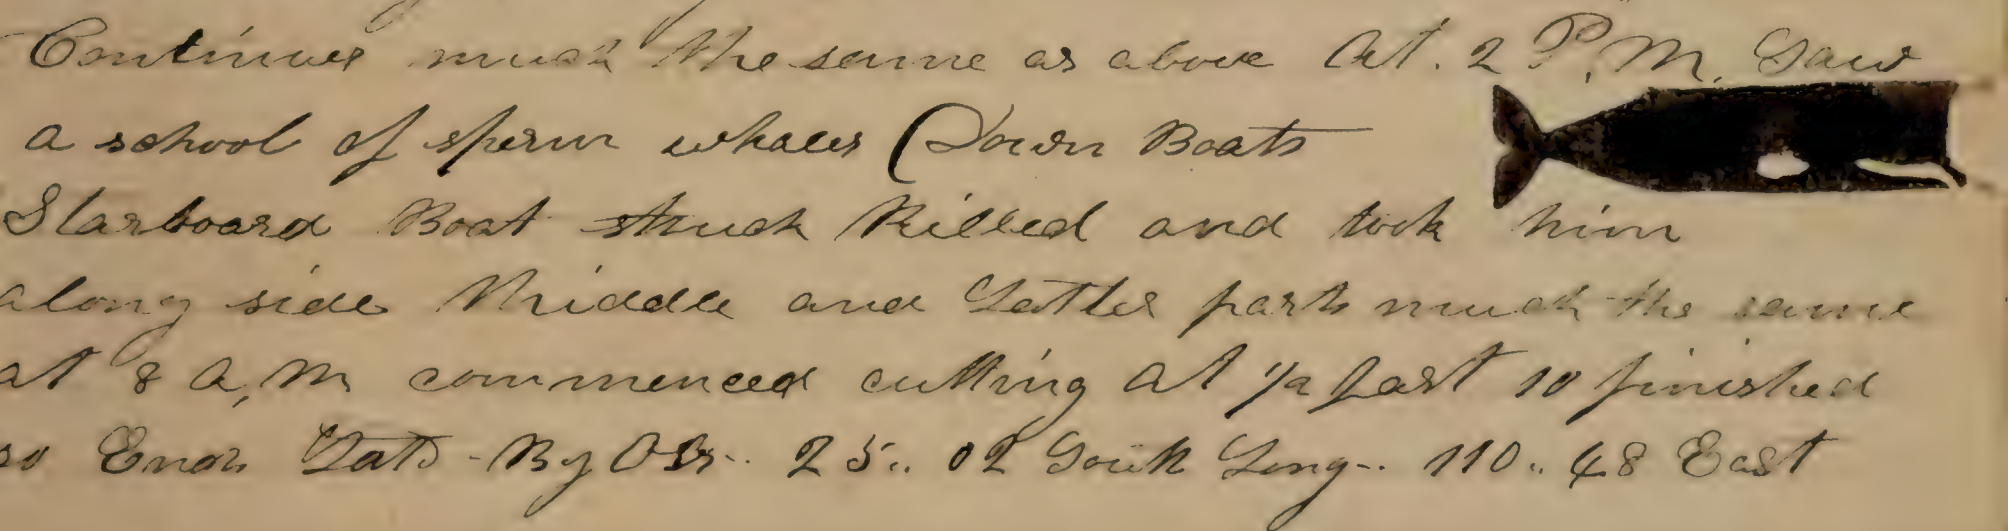 Continues much the same as above At. 2 P.M. Saw
a school of sperm whales (Down Boats
Starboard Boat struck Killed and took him
along side Middle and Latter parts much the same
at 8 A,M commenced cutting At 1/2 past 10 finished
so Ends Latd - By Obs. 25.. 02 South Long-. 110.. 48 East